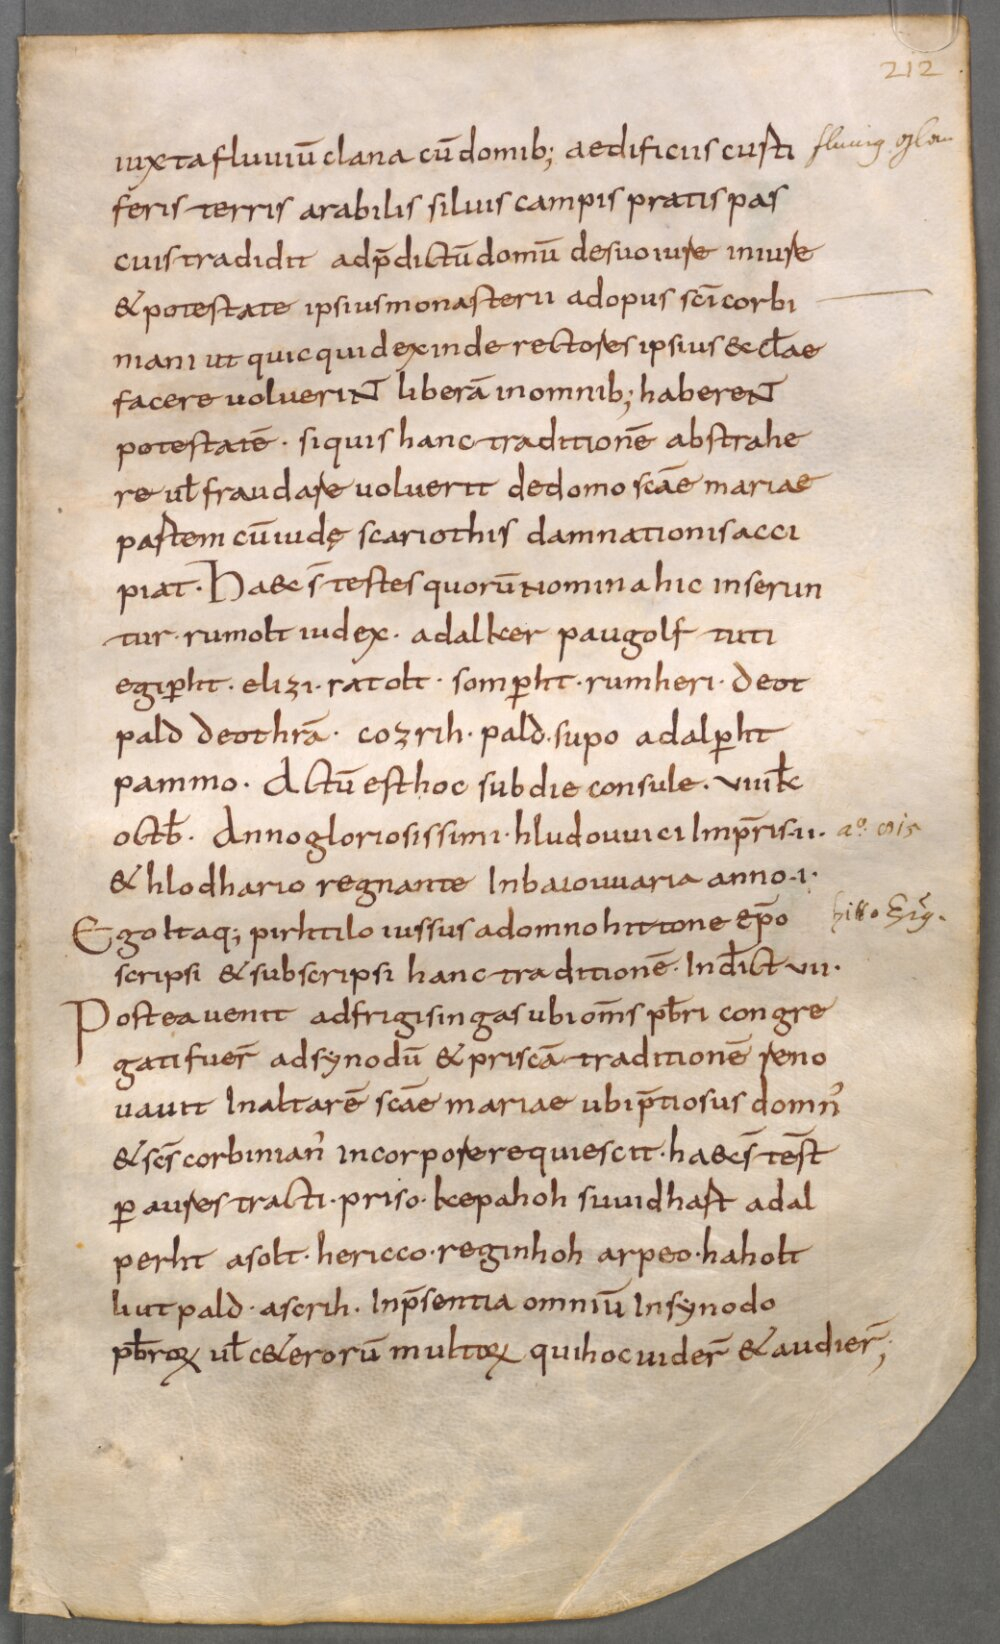 212
iuxta fluuiū clana cū domib; aedificiis custi
fluuig glan
feris terris arabilis siluis campis pratis pas
cuis tradidit ad p̄dictū domū de suo iure in iure
& potestate ipsius monasterii ad opus sc̄i corbi
niani ut quicquid exinde rectores ipsius &cl̄ae
facere uoluerint liberā in omnib; haberent
potestatē · si quis hanc traditionē abstrahe
re ul̄ fraudare uoluerit de domo sc̄ae mariae
partem cū iudę scariothis damnationis acci
piat · Haec s̄ testes quorū nomina hic inserun
tur · rumolt iudex · adalker paugolf tuti
egip̱ht · elizi · ratolt · somp̱ht · rumheri · deot
pald deothrā · cozrih · pald · supo adalp̱ht
pammo · Actū est hoc sub die consule · viiii kl̄
octb̄ · Anno gloriosissimi · hludouuici Imp̄ris · ii ·
& hlodhario regnante In baiouuaria anno · i ·
Ego itaq; pirhtilo iussus a domno hittone ep̄o
hitto
scripsi & subscripsi hanc traditionē · Indict̄ vii ·
Postea uenit ad frigisingas ubi om̄s pb̄ri congre
gati fuer̄ ad synodū & priscā traditionē reno
uauit In altarē sc̄ae mariae ubi p̄tiosus domn᾽
& sc̄s corbinian᾽ in corpore requiescit · haec s̄ tes̄t
p̱ aures tracti · priso · kepahoh suuidhart adal
perht asolt · hericco · reginhoh arpeo · haholt
liutpald · ascrih · In p̄sentia omniū In synodo
pb̄roꝝ ul̄ c&erorū multoꝝ qui hoc uider̄ & audier̄;